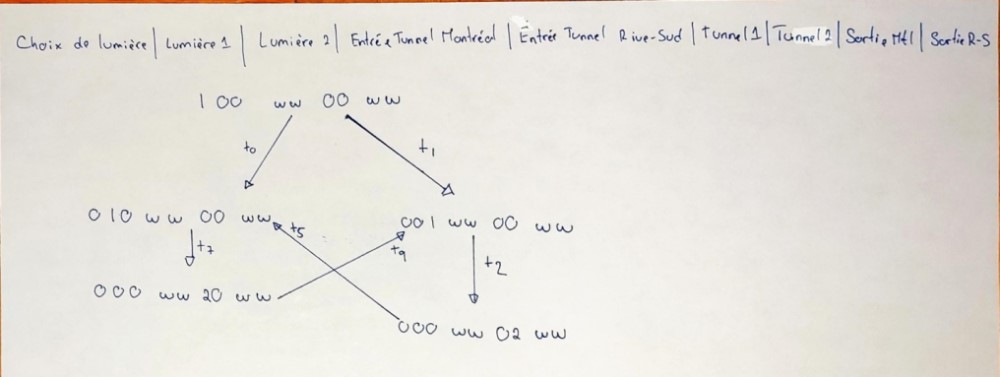 Choix de lumière | Lumière 1 | Lumière 2 | Entrée Tunnel Montréal | Entrée Tunnel Rive-Sud | Tunnel 1 | Tunnel 2 | Sortie Mtl | Sortie R-S
1 00 ww 00 ww
t0 t1
010 ww 00 ww t5 001 ww 00 ww
t7 t9 t2
000 ww 20 ww
000 ww 02 ww